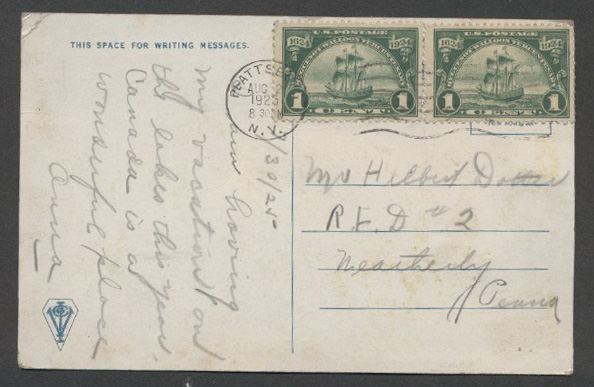 THIS SPACE FOR WRITING MESSAGES.
8/30/25
am having
my vacation on
the lakes this year.
Canada is a
wonderful place
Anna
PLATTSB
AUG
1925
8 30
N.Y.
U.S. POSTAGE
1624 1924
HUGUENOT WALLOON TERCENTENARY
1 CENT 1
U.S. POSTAGE
1624 1924
HUGUENOT WALLOON TERCENTENARY
1 CENT 1
Mr Hilbert
R.F.D # 2
Weatherly
Penna